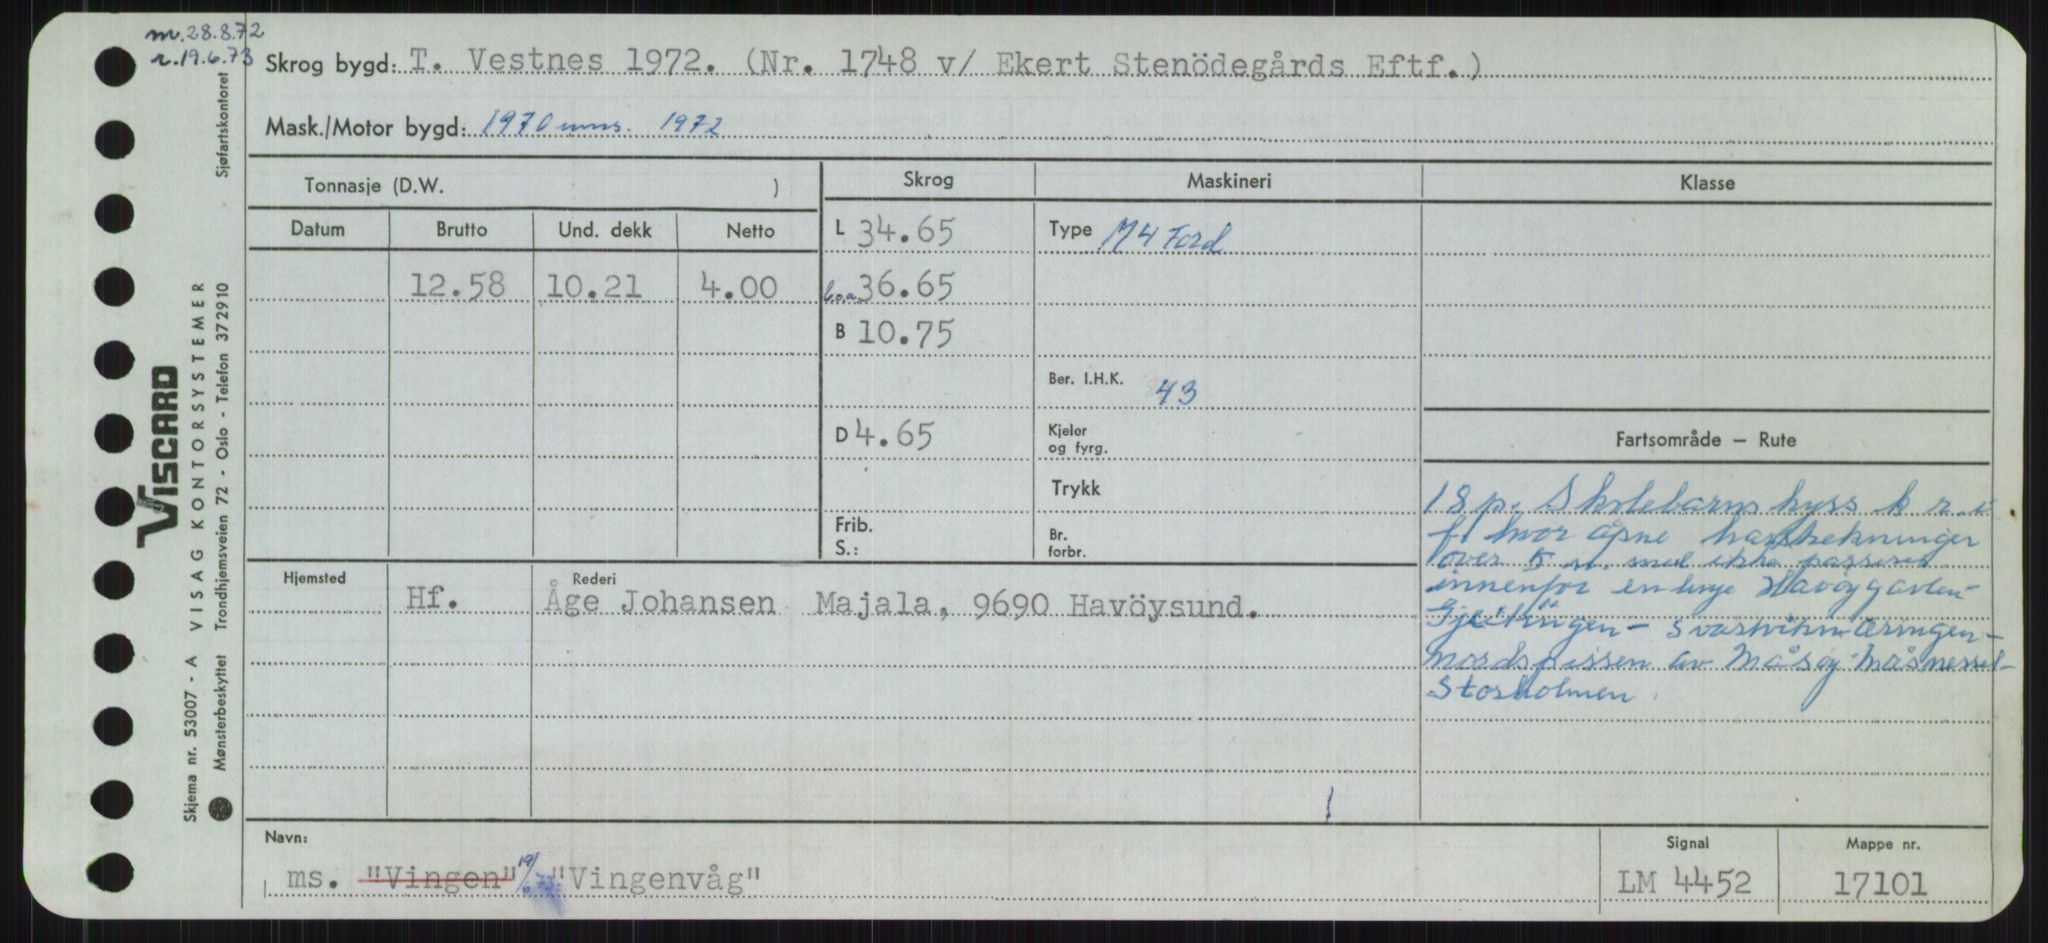 m. 28.8.72
r. 19.6.73
Skrog bygd: T. Vestnes 1972. (Nr. 1748 v/ Ekert Stenödegårds Eftf.)
Mask./Motor bygd: 1970 1972
Tonnasje (D.W. )
Skrog
Maskineri
Klasse
Datum
Brutto
Und. dekk
Netto
12.58
10.21
4.00
L 34.65
l.o.a 36.65
B 10.75
D 4.65
Frib.
S.:
Type M4 Ford
Ber. I.H.K. 43
Kjeler
og fyrg.
Trykk
Br.
forbr.
Fartsområde – Rute
18 p. Skolebarns kyss k r. i
f. hvor åpne havstrekninger
over 5 n. mil ikke passeres
innenfor en linje Havöygavlen-
Gjestingen - Svartvikn-æringen-
nordspissen av Måsöy-Måsnesset-
Storholmen.
Hjemsted
Rederi
Hf.
Åge Johansen Majala, 9690 Havöysund.
Navn:
ms. "Vingen" 19/6-73 "Vingenvåg"
Signal
LM 4452
Mappe nr.
17101
VISCARD
VISAG KONTORSYSTEMER
Sjøfartskontoret
Trondhjemsveien 72 - Oslo - Telefon 372910
Skjema nr. 53007 - A
Mønsterbeskyttet